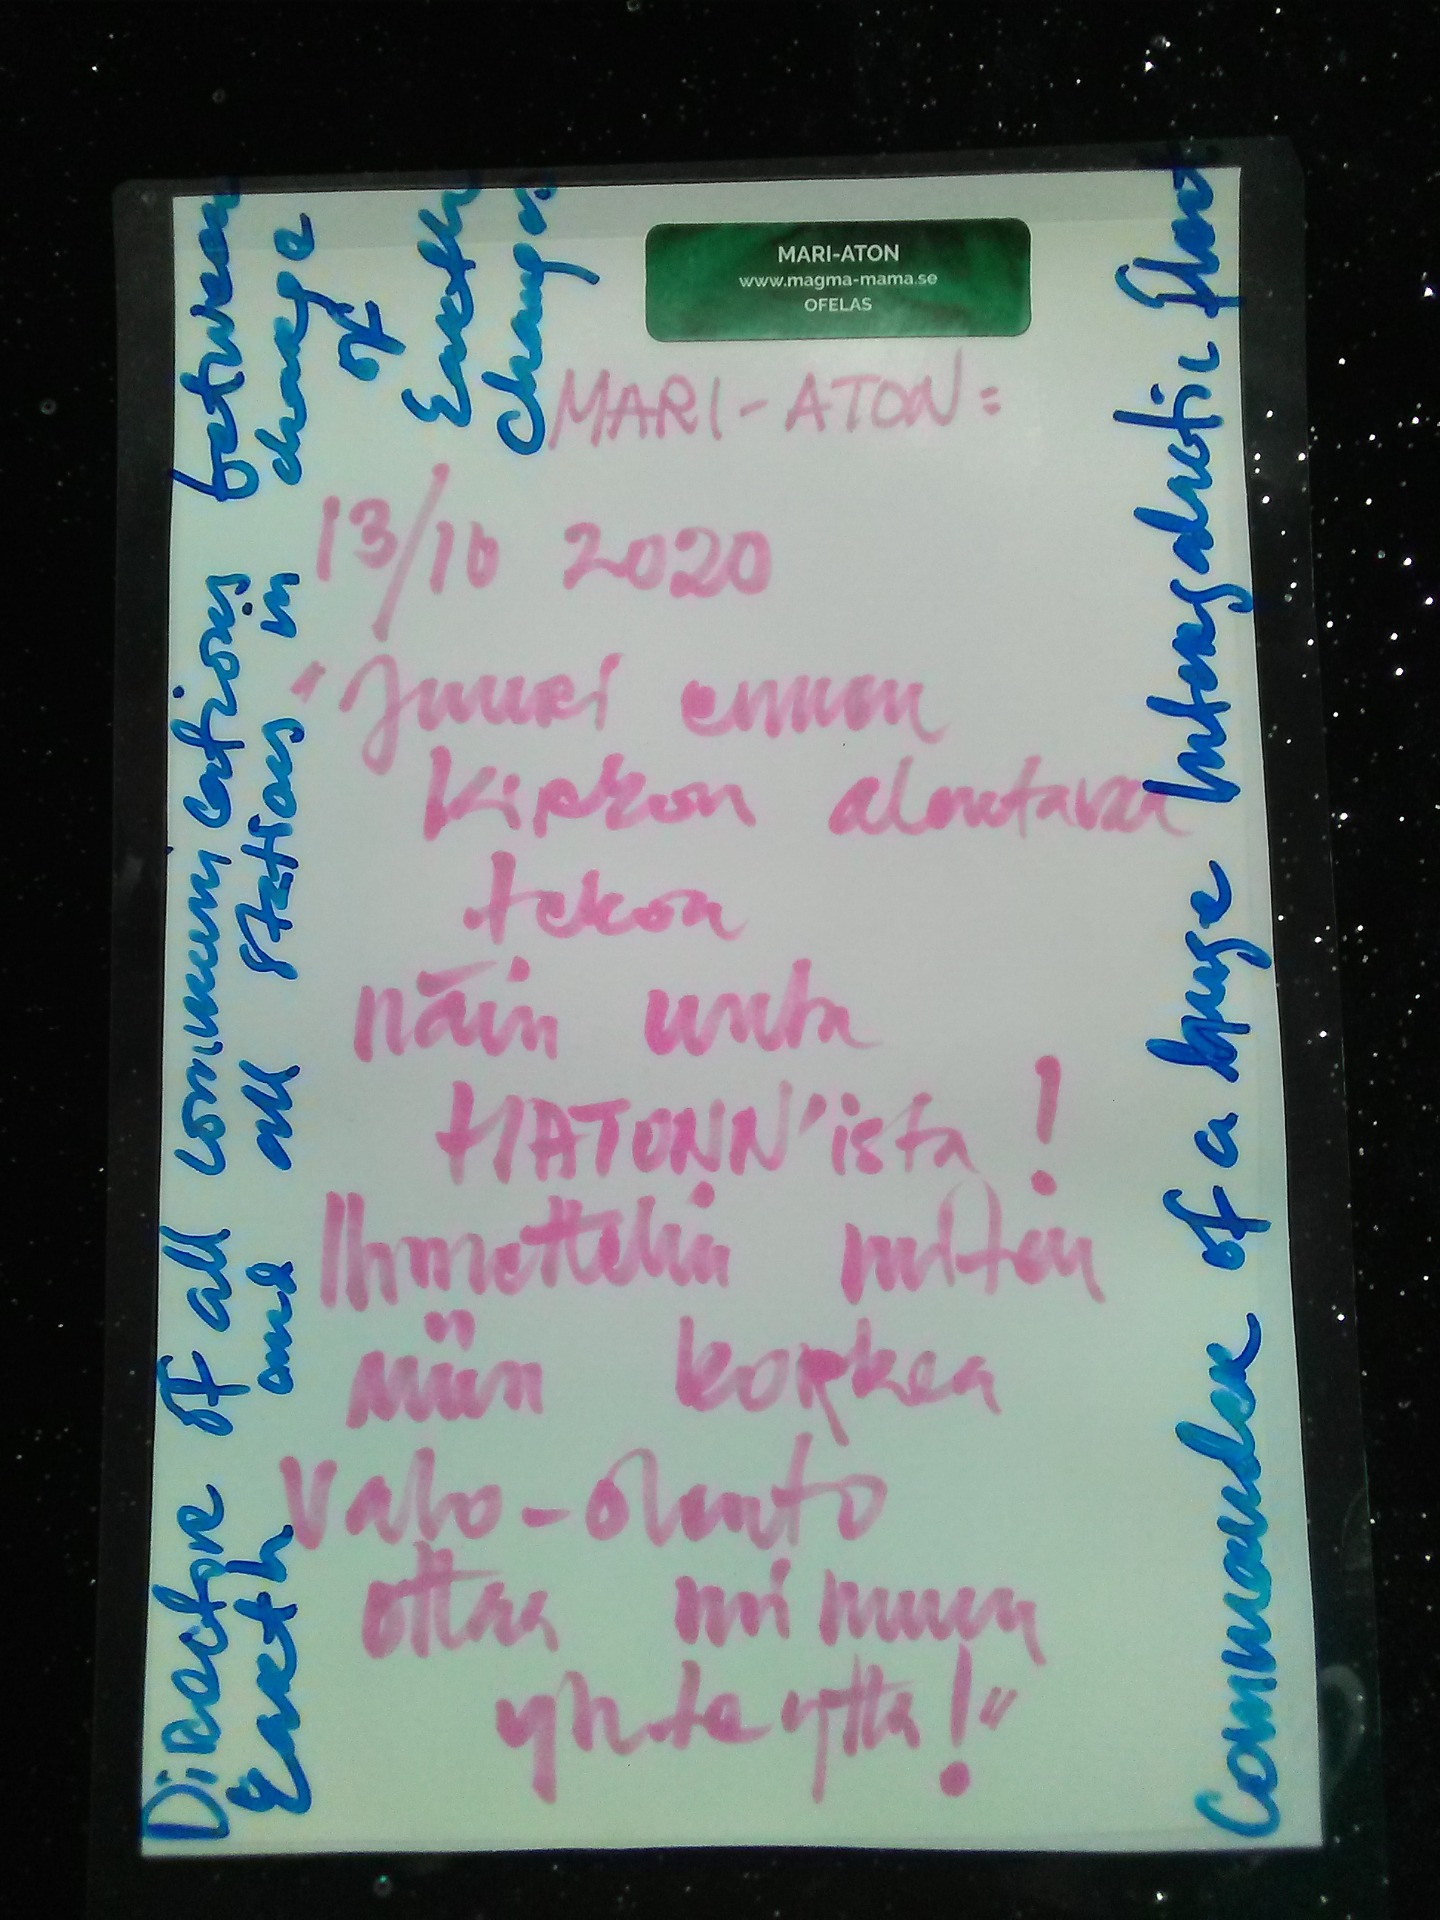 MARI-ATON
www.magma-mama.se
OFELAS
MARI-ATON:
13/10 2020
"Juuri ennen
kirkon aloutavaa
tekoa
näin unta
HATONN'ista!
Ihmettelin miten
niin korkea
Valo-olento
ottaa minuun
yhteyttä!"
Director of all communications between
Earth and all stations in charge
of
Earth
changes
Commander of a huge Intergalactic fleet